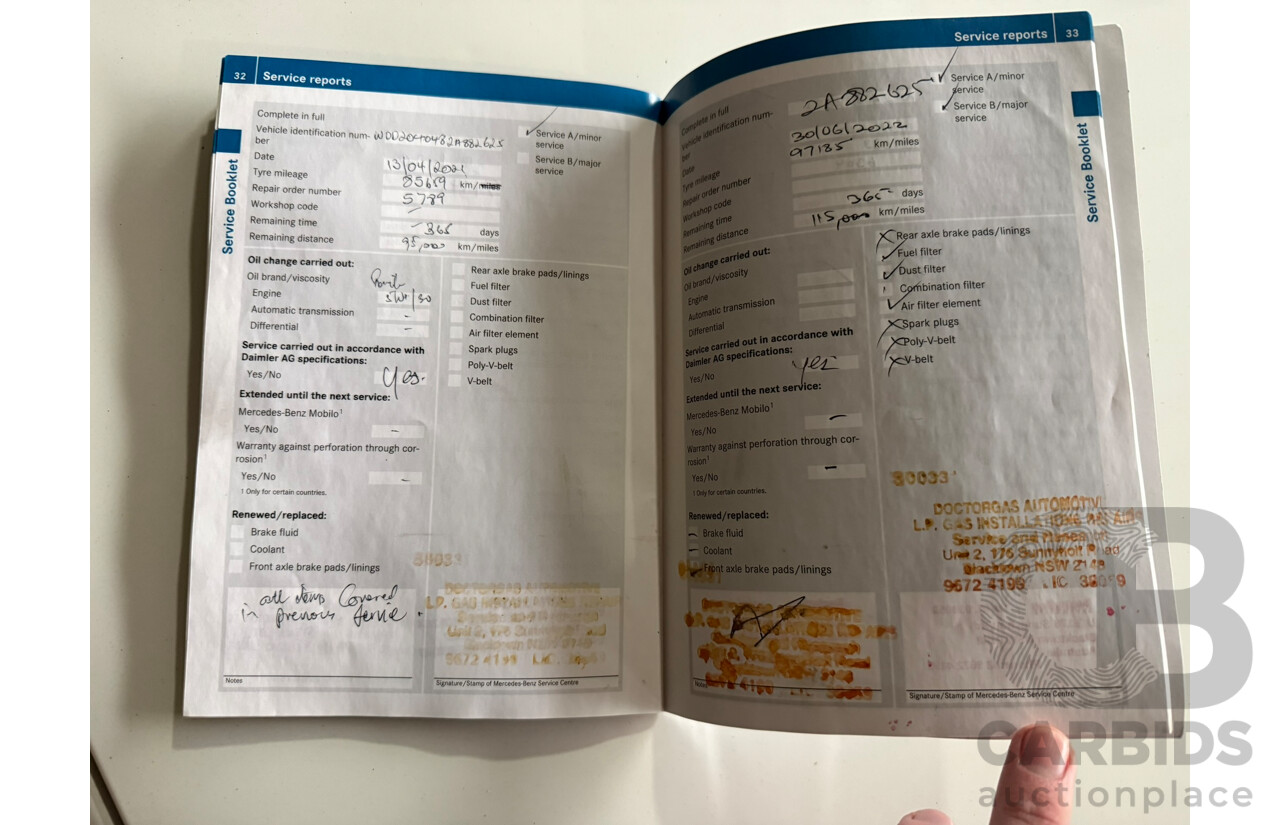 32 Service reports
Complete in full
Vehicle identification num-
ber
WDD2040482A882625
Date
13/04/2021
Tyre mileage
85659 km/miles
Repair order number
5789
Workshop code
Remaining time
365 days
Remaining distance
95,000 km/miles
Service A/minor
service
Service B/major
service
Oil change carried out:
Oil brand/viscosity
Engine
5W/30
Automatic transmission
-
Differential
-
Service carried out in accordance with
Daimler AG specifications:
Yes/No
Yes.
Extended until the next service:
Mercedes-Benz Mobilo¹
Yes/No
-
Warranty against perforation through cor-
rosion¹
Yes/No
-
¹ Only for certain countries.
Renewed/replaced:
Brake fluid
Coolant
Front axle brake pads/linings
Rear axle brake pads/linings
Fuel filter
Dust filter
Combination filter
Air filter element
Spark plugs
Poly-V-belt
V-belt
all items Covered
in previous
Notes
80033
DOCTORGAS AUTOMOTIVE
9672 4199
Signature/Stamp of Mercedes-Benz Service Centre
Service Booklet
Service reports 33
Complete in full
Vehicle identification num-
ber
2A882625
Date
30/06/2022
Tyre mileage
97185 km/miles
Repair order number
Workshop code
Remaining time
365 days
Remaining distance
115,000 km/miles
Service A/minor
service
Service B/major
service
Oil change carried out:
Oil brand/viscosity
Engine
Automatic transmission
Differential
Service carried out in accordance with
Daimler AG specifications:
Yes/No
Yes
Extended until the next service:
Mercedes-Benz Mobilo¹
Yes/No
-
Warranty against perforation through cor-
rosion¹
Yes/No
-
¹ Only for certain countries.
Renewed/replaced:
Brake fluid
Coolant
Front axle brake pads/linings
Rear axle brake pads/linings
Fuel filter
Dust filter
Combination filter
Air filter element
Spark plugs
Poly-V-belt
V-belt
80033
DOCTORGAS AUTOMOTIVE
L.P. GAS INSTALLATIONS
Unit 2, 176 Sunnyholt Road
Blacktown NSW 2148
9672 4199 LIC
Notes
Signature/Stamp of Mercedes-Benz Service Centre
Service Booklet
CARBIDS
auctionplace